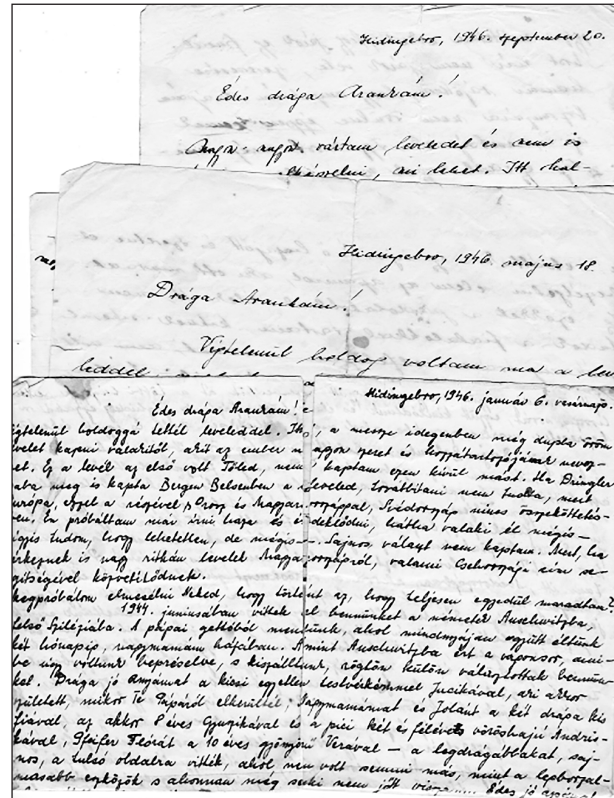 Hidingebro, 1946. szeptember 20.
Édes drága Arankám!
Nagyon-nagyon vártam leveledet és nem is
elképzelni, mi lehet. Itt
Hidingebro, 1946. május 18.
Drága Arankám!
Végtelenül boldog voltam ma a lev
Hidingebro, 1946. január 6. vasárnap.
Édes drága Arankám!
gtelenül boldoggá tettél leveleddel. Itt, a messze idegenben még dupla öröm
velet kapni valakitől, akit az ember nagyon szeret és hozzátartozójának nevez-
et. Ez a levél az első volt Tőled, nem kaptam ezen kívül mást. Ha
aba meg is kapta Bergen Belsenben a leveled, továbbítani nem tudta, mert
urópa, ezzel a részével, Orosz és Magyarországgal, Svédország nincs összeköttetés-
en. Én próbáltam már írni haza és érdeklődni, hátha valaki él mégis-
igyis tudom, hogy lehetetlen, de mégis – Sajnos, választ nem kaptam. Mert, ha
érkeznek is nagy ritkán levelek Magyarországról, valami Csehországi címe se-
gítségével közvetítődnek.
Megpróbálom elmesélni Neked, hogy történt az, hogy teljesen egyedül maradtam?
1944. júniusában vittek el bennünket a németek Auschwitzba,
felső Sziléziába. A pápai gettóból mentünk, ahol mindnyájan együtt éltünk
két hónapig, nagymamám házában. Amint Auschwitzba ért a vaponsor, ami-
be úgy voltunk bepréselve, s kiszálltunk, rögtön külön választottak bennün-
ket. Drága jó Anyámat a kicsi egyetlen testvérkémmel Jucikával, aki akkor
született, mikor Te Pápáról elkerültél; Nagymamámat és Jolánt a két drága kis
fiával, az akkor 8 éves Gyugikával és a pici két és féléves vöröshajú Andris-
kával, Pfeifer Flórát a 10 éves gyönyörű Verával – a legdrágábbakat, saj-
nos, a túlsó oldalra vitték, ahol nem volt semmi más, mint a legborzal-
masabb eszközök s ahonnan még senki nem jött vissza.... Édes jó